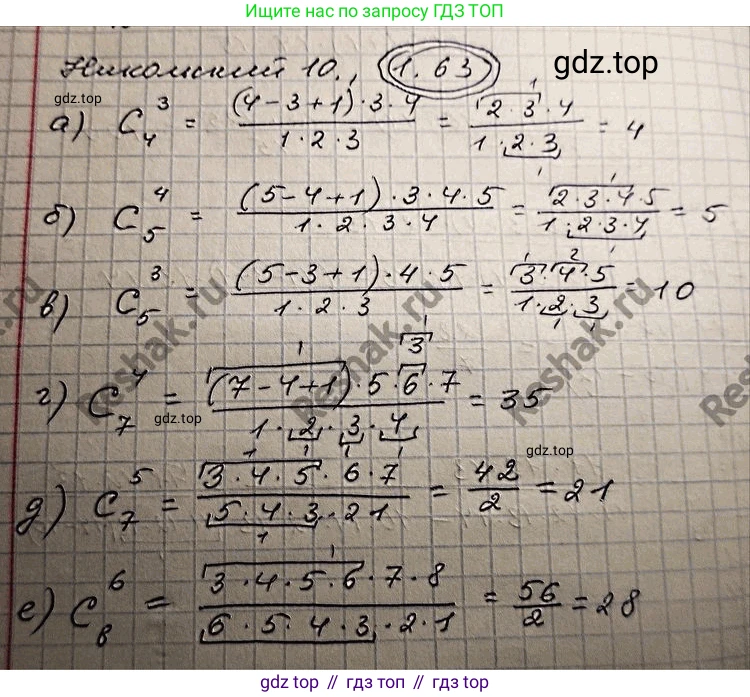 Ищите нас по запросу ГДЗ ТОП
Никольский 10. 1.63
gdz.top
gdz.top
а) C₄³ = (4-3+1)·3·4 / 1·2·3 = 2·3·4 / 1·2·3 = 4
б) C₅⁴ = (5-4+1)·3·4·5 / 1·2·3·4 = 2·3·4·5 / 1·2·3·4 = 5
в) C₅³ = (5-3+1)·4·5 / 1·2·3 = 3·4·5 / 1·2·3 = 10
г) C₇⁴ = (7-4+1)·5·6·7 / 1·2·3·4 = 35
gdz.top
gdz.top
д) C₇⁵ = 3·4·5·6·7 / 5·4·3·21 = 42/2 = 21
е) C₈⁶ = 3·4·5·6·7·8 / 6·5·4·3·2·1 = 56/2 = 28
Reshak.ru
Reshak.ru
Reshak.ru
gdz.top // gdz.top // gdz.top